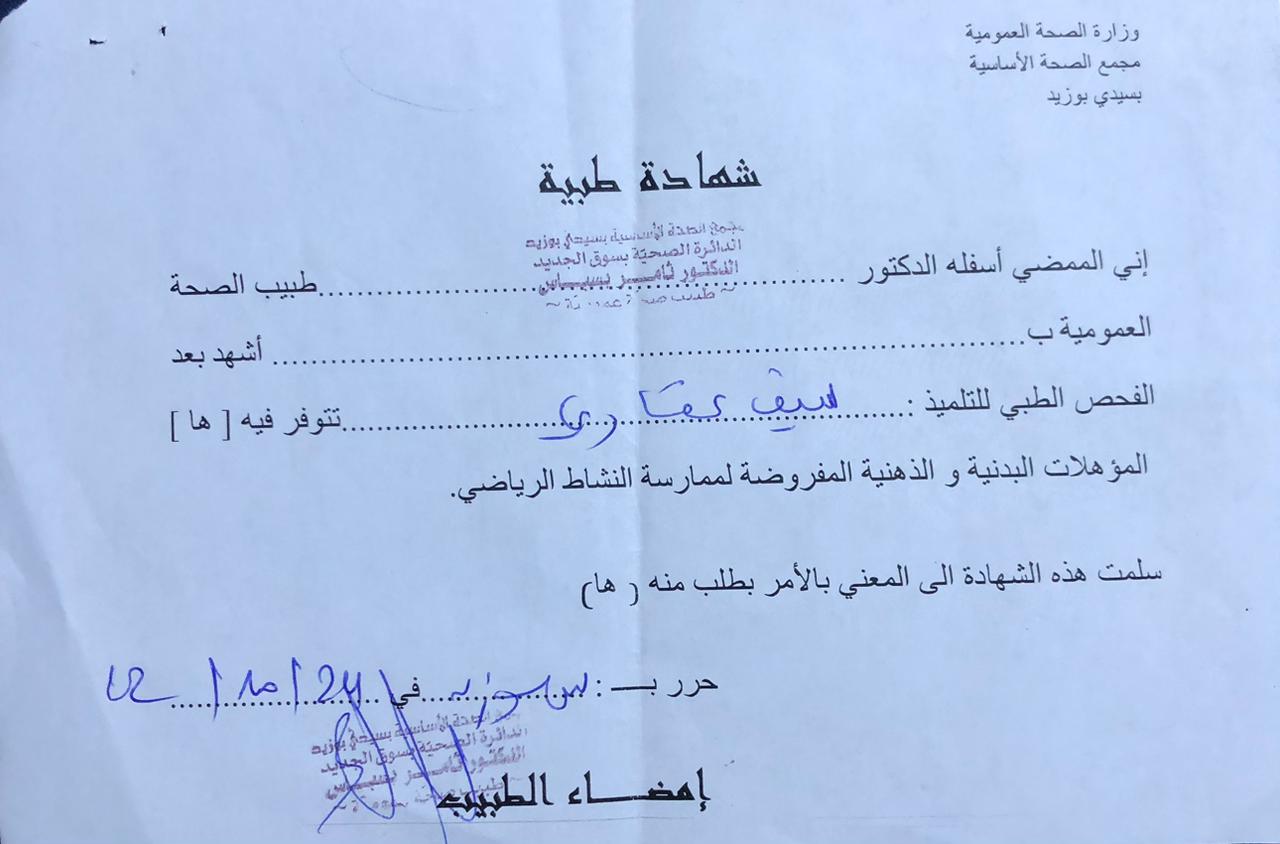 وزارة الصحة العمومية
مجمع الصحة الأساسية
بسيدي بوزيد
شهادة طبية
مجمع الصحة الأساسية بسيدي بوزيد
الدائرة الصحية بسوق الجديد
الدكتور ثامر بسباس
~ طبيب صحة عمومية ~
إني الممضي أسفله الدكتور ........................................ طبيب الصحة
العمومية ب........................................ أشهد بعد
الفحص الطبي للتلميذ : سيف ........................................ تتوفر فيه [ ها ]
المؤهلات البدنية و الذهنية المفروضة لممارسة النشاط الرياضي.
سلمت هذه الشهادة الى المعني بالأمر بطلب منه ( ها)
حرر بـــ : س بوزيد في 24 / 10 /
مجمع الصحة الأساسية بسيدي بوزيد
الدائرة الصحية بسوق الجديد
الدكتور ثامر بسباس
~ طبيب صحة عمومية ~
إمضاء الطبيب